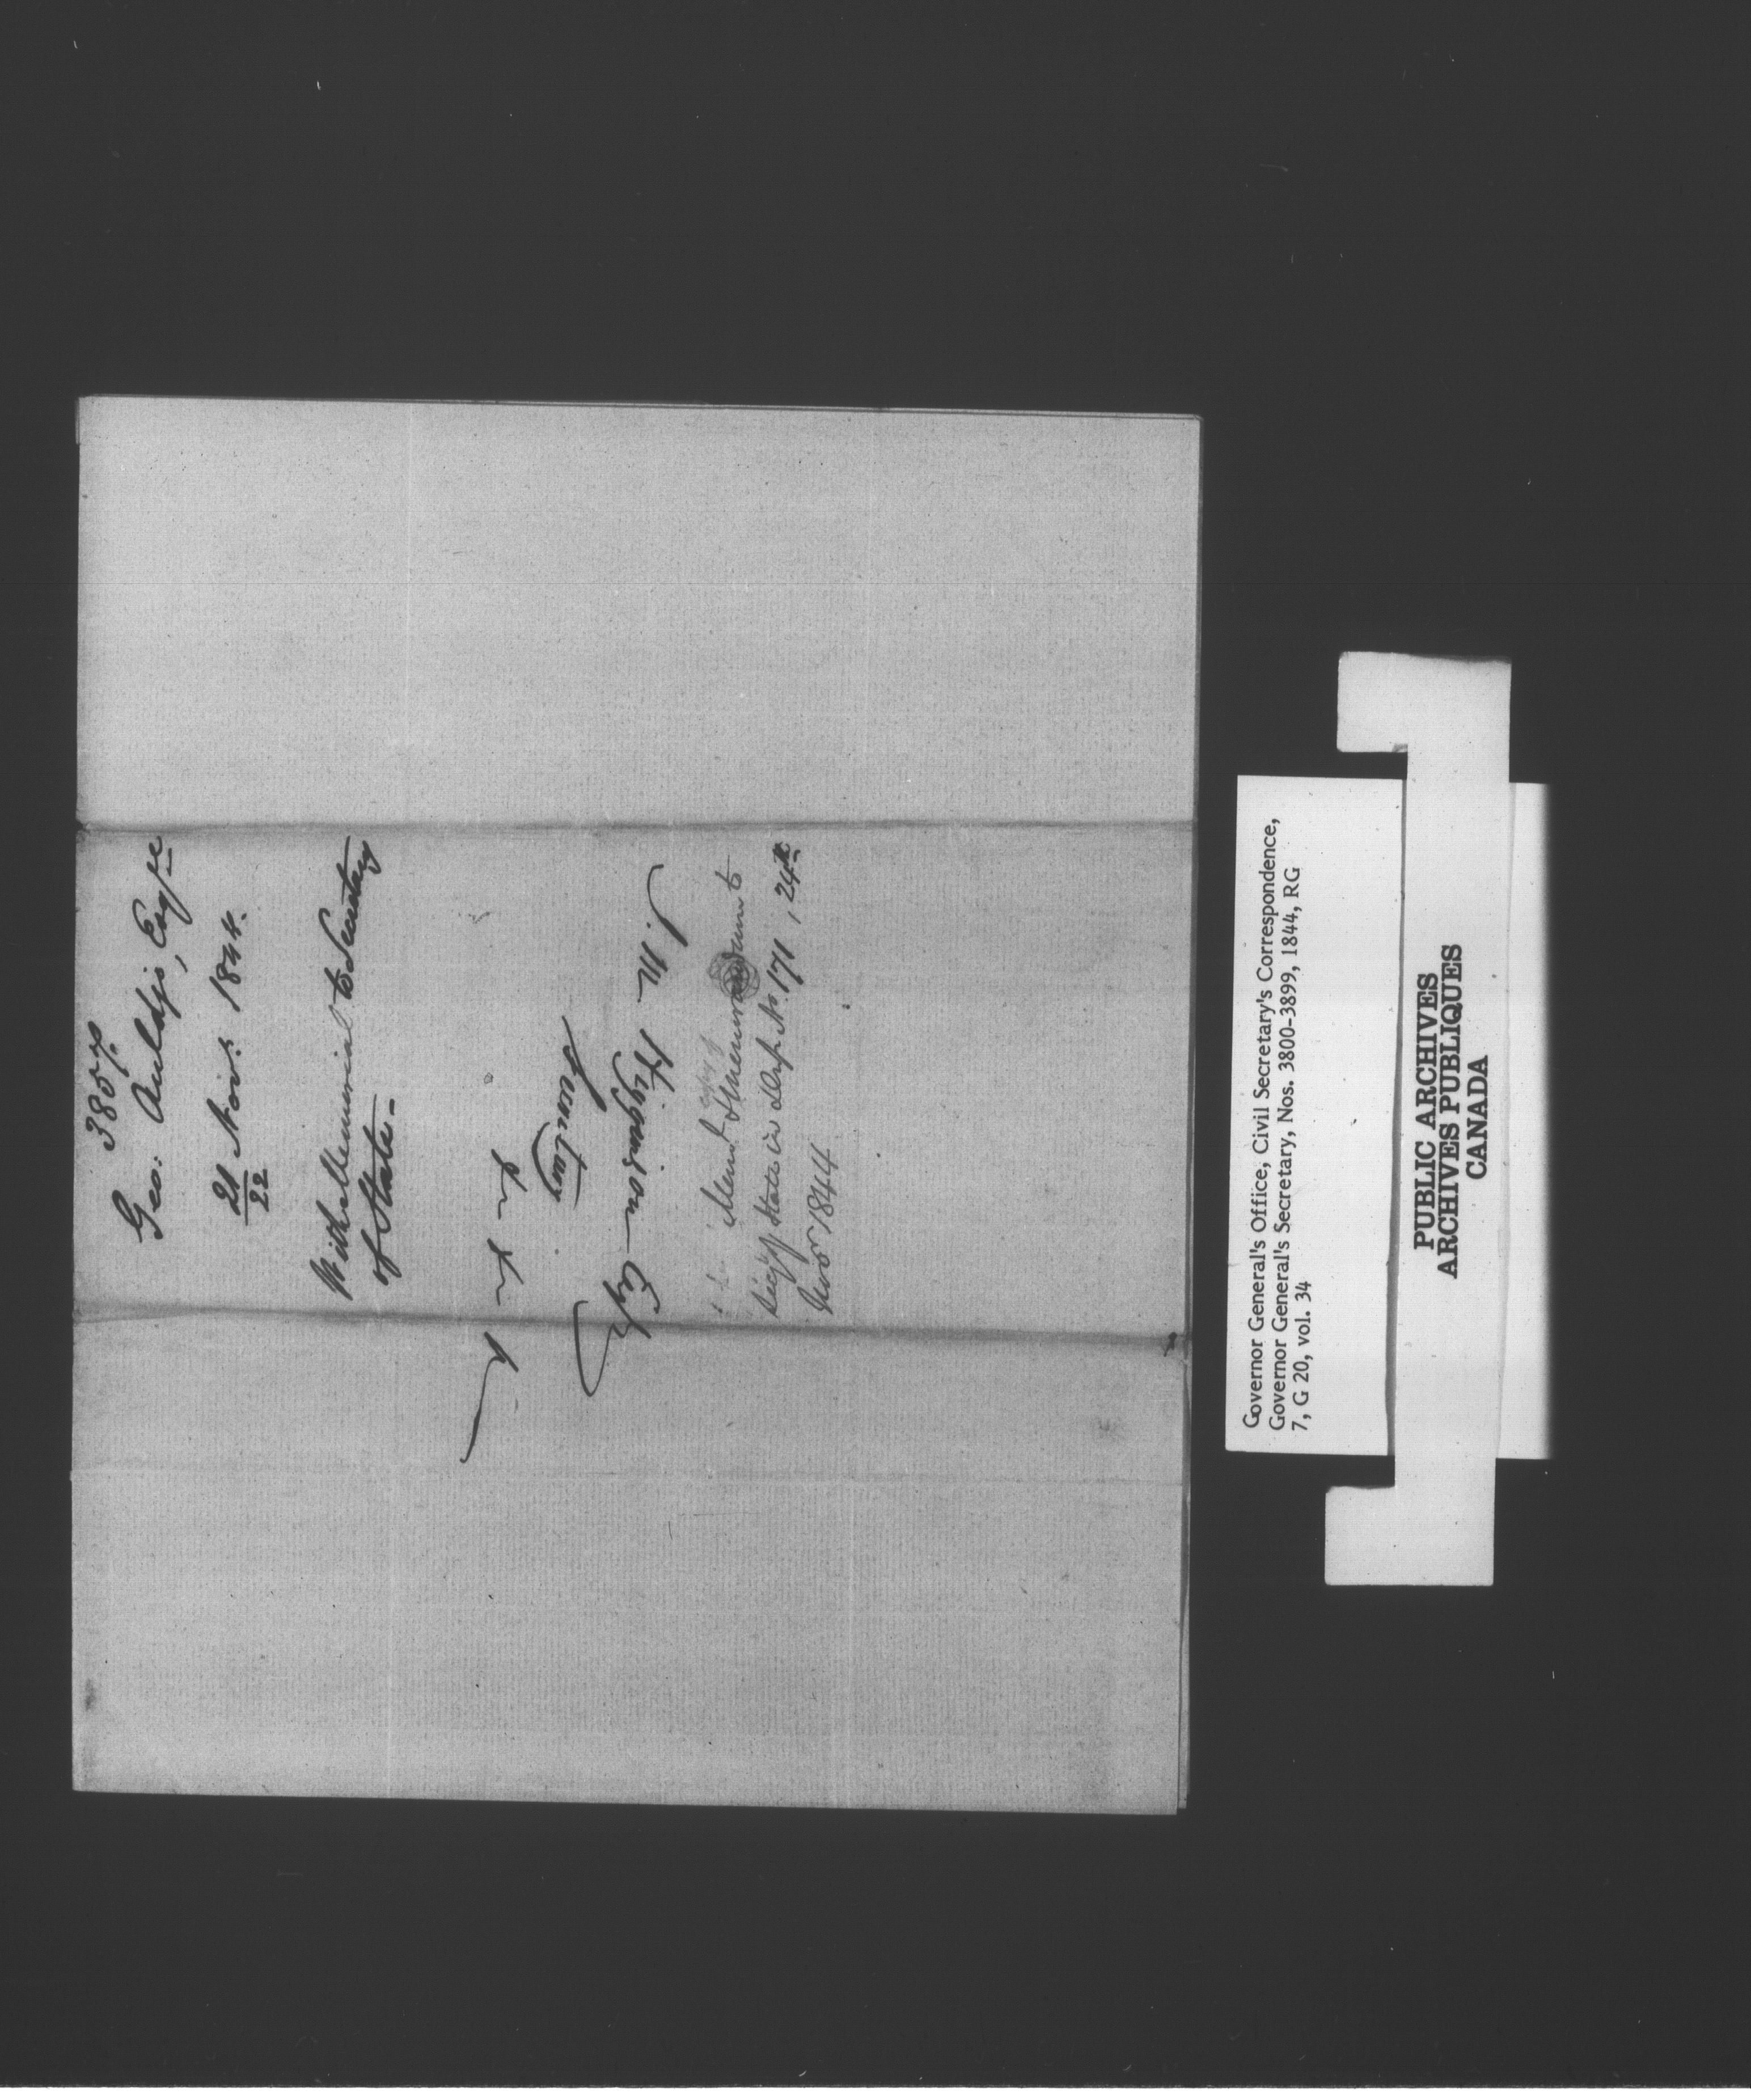 3857.
Geo: Auldjo, Esqre
21 Novr. 1844.
22
With Memorial to Secretary
of State.-
J. M. Higginson Esqr
Secretary
&c &c &c
Meml & copy of Memorandum to
Secy of State in Desp. No. 171, 24th
Novr 1844
Governor General's Office, Civil Secretary's Correspondence,
Governor General's Secretary, Nos. 3800-3899, 1844, RG
7, G 20, vol. 34
PUBLIC ARCHIVES
ARCHIVES PUBLIQUES
CANADA